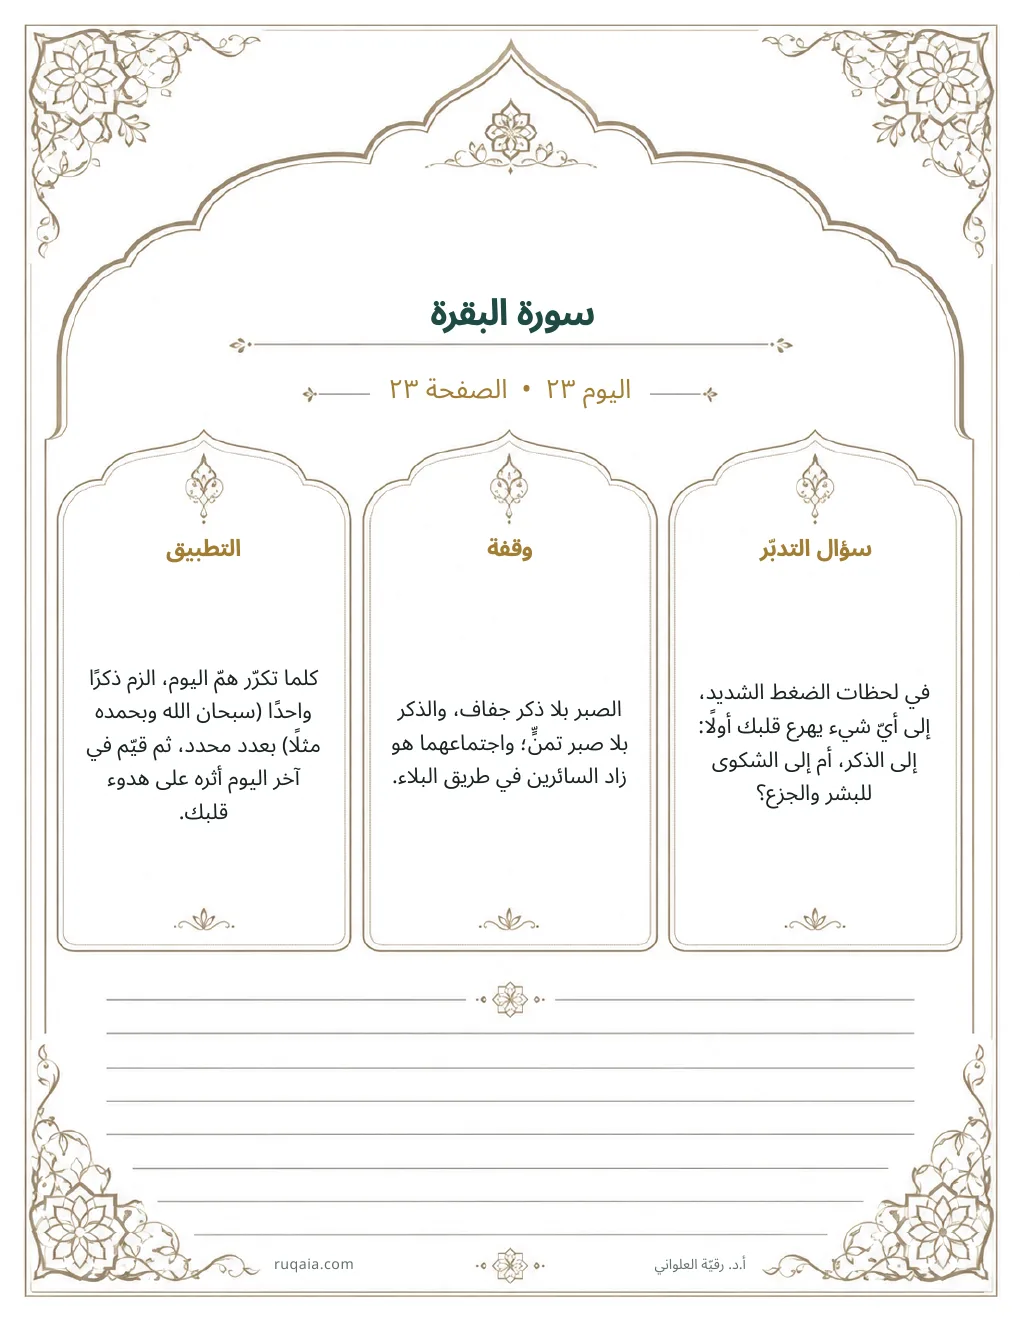 سورة البقرة
اليوم ٢٣ • الصفحة ٢٣
سؤال التدبّر
في لحظات الضغط الشديد،
إلى أيّ شيء يهرع قلبك أولًا:
إلى الذكر، أم إلى الشكوى
للبشر والجزع؟
وقفة
الصبر بلا ذكر جفاف، والذكر
بلا صبر تمنٍّ؛ واجتماعهما هو
زاد السائرين في طريق البلاء.
التطبيق
كلما تكرّر همّ اليوم، الزم ذكرًا
واحدًا (سبحان الله وبحمده
مثلًا) بعدد محدد، ثم قيّم في
آخر اليوم أثره على هدوء
قلبك.
أ.د. رقيّة العلواني
ruqaia.com